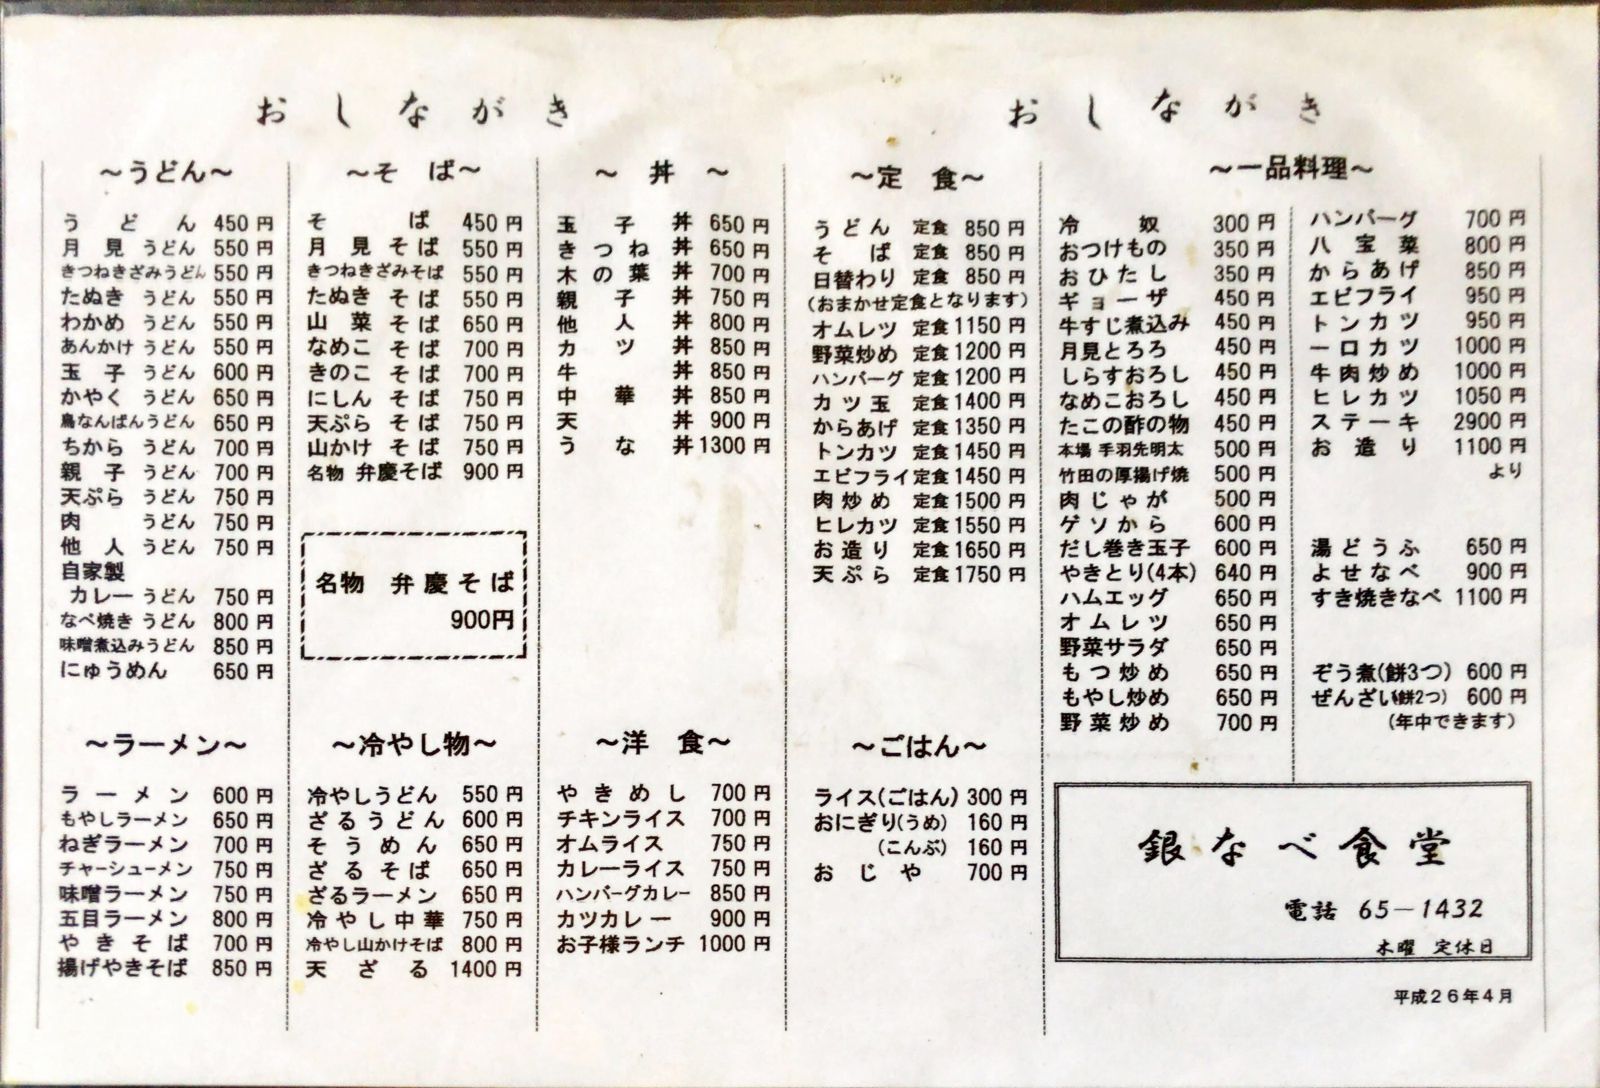 おしながき
～うどん～
うどん 450円
月見うどん 550円
きつねきざみうどん 550円
たぬきうどん 550円
わかめうどん 550円
あんかけうどん 550円
玉子うどん 600円
かやくうどん 650円
鳥なんばんうどん 650円
ちからうどん 700円
親子うどん 700円
天ぷらうどん 750円
肉うどん 750円
他人うどん 750円
自家製
カレーうどん 750円
なべ焼きうどん 800円
味噌煮込みうどん 850円
にゅうめん 650円
～そば～
そば 450円
月見そば 550円
きつねきざみそば 550円
たぬきそば 550円
山菜そば 650円
なめこそば 700円
きのこそば 700円
にしんそば 750円
天ぷらそば 750円
山かけそば 750円
名物 弁慶そば 900円
名物 弁慶そば
900円
～丼～
玉子丼 650円
きつね丼 650円
木の葉丼 700円
親子丼 750円
他人丼 800円
カツ丼 850円
牛丼 850円
中華丼 850円
天丼 900円
うな丼 1300円
～ラーメン～
ラーメン 600円
もやしラーメン 650円
ねぎラーメン 700円
チャーシューメン 750円
味噌ラーメン 750円
五目ラーメン 800円
やきそば 700円
揚げやきそば 850円
～冷やし物～
冷やしうどん 550円
ざるうどん 600円
そうめん 650円
ざるそば 650円
ざるラーメン 650円
冷やし中華 750円
冷やし山かけそば 800円
天ざる 1400円
～洋食～
やきめし 700円
チキンライス 700円
オムライス 750円
カレーライス 750円
ハンバーグカレー 850円
カツカレー 900円
お子様ランチ 1000円
おしながき
～定食～
うどん 定食 850円
そば 定食 850円
日替わり 定食 850円
(おまかせ定食となります)
オムレツ 定食 1150円
野菜炒め 定食 1200円
ハンバーグ 定食 1200円
カツ玉 定食 1400円
からあげ 定食 1350円
トンカツ 定食 1450円
エビフライ 定食 1450円
肉炒め 定食 1500円
ヒレカツ 定食 1550円
お造り 定食 1650円
天ぷら 定食 1750円
～ごはん～
ライス(ごはん) 300円
おにぎり(うめ) 160円
(こんぶ) 160円
おじや 700円
～一品料理～
冷奴 300円
おつけもの 350円
おひたし 350円
ギョーザ 450円
牛すじ煮込み 450円
月見とろろ 450円
しらすおろし 450円
なめこおろし 450円
たこの酢の物 450円
本場 手羽先明太 500円
竹田の厚揚げ焼 500円
肉じゃが 500円
ゲソから 600円
だし巻き玉子 600円
やきとり(4本) 640円
ハムエッグ 650円
オムレツ 650円
野菜サラダ 650円
もつ炒め 650円
もやし炒め 650円
野菜炒め 700円
ハンバーグ 700円
八宝菜 800円
からあげ 850円
エビフライ 950円
トンカツ 950円
一口カツ 1000円
牛肉炒め 1000円
ヒレカツ 1050円
ステーキ 2900円
お造り 1100円
より
湯どうふ 650円
よせなべ 900円
すき焼きなべ 1100円
ぞう煮(餅3つ) 600円
ぜんざい(餅2つ) 600円
(年中できます)
銀なべ食堂
電話 65－1432
木曜 定休日
平成26年4月